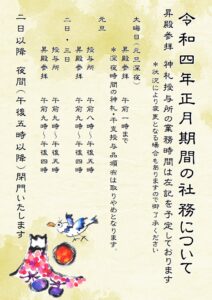 令和四年正月期間の社務について
昇殿参拝 神札授与所の業務時間は左記を予定しております
*状況により変更となる場合もありますので御了承ください
大晦日(元旦深夜)
昇殿参拝 午前一時まで
*深夜時間の神札・干支授与品頒布は取りやめとなります。
元旦
授与所 午前八時〜午後五時
昇殿参拝 午前九時〜午後五時
二日・三日
授与所 午前九時〜午後五時
昇殿参拝 午前九時〜午後四時
二日以降 夜間(午後五時以降)閉門いたします